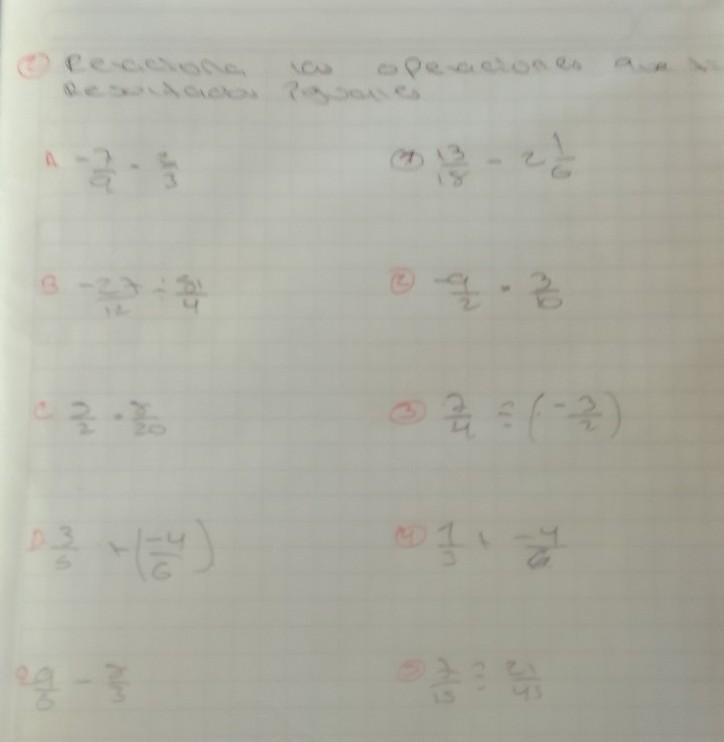 ② Relaciona las operaciones que
Resultados Iguales
A -7/9 - 2/3 ① 13/18 - 2 1/6
B -27/12 ÷ 81/4 ② -9/2 · 3/10
C 7/2 · 8/20 ③ 7/4 ÷ (-3/2)
D 3/6 + (-4/6) ④ 1/3 + -4/6
9/6 - 2/3 ⑤ 7/15 ÷ 21/45